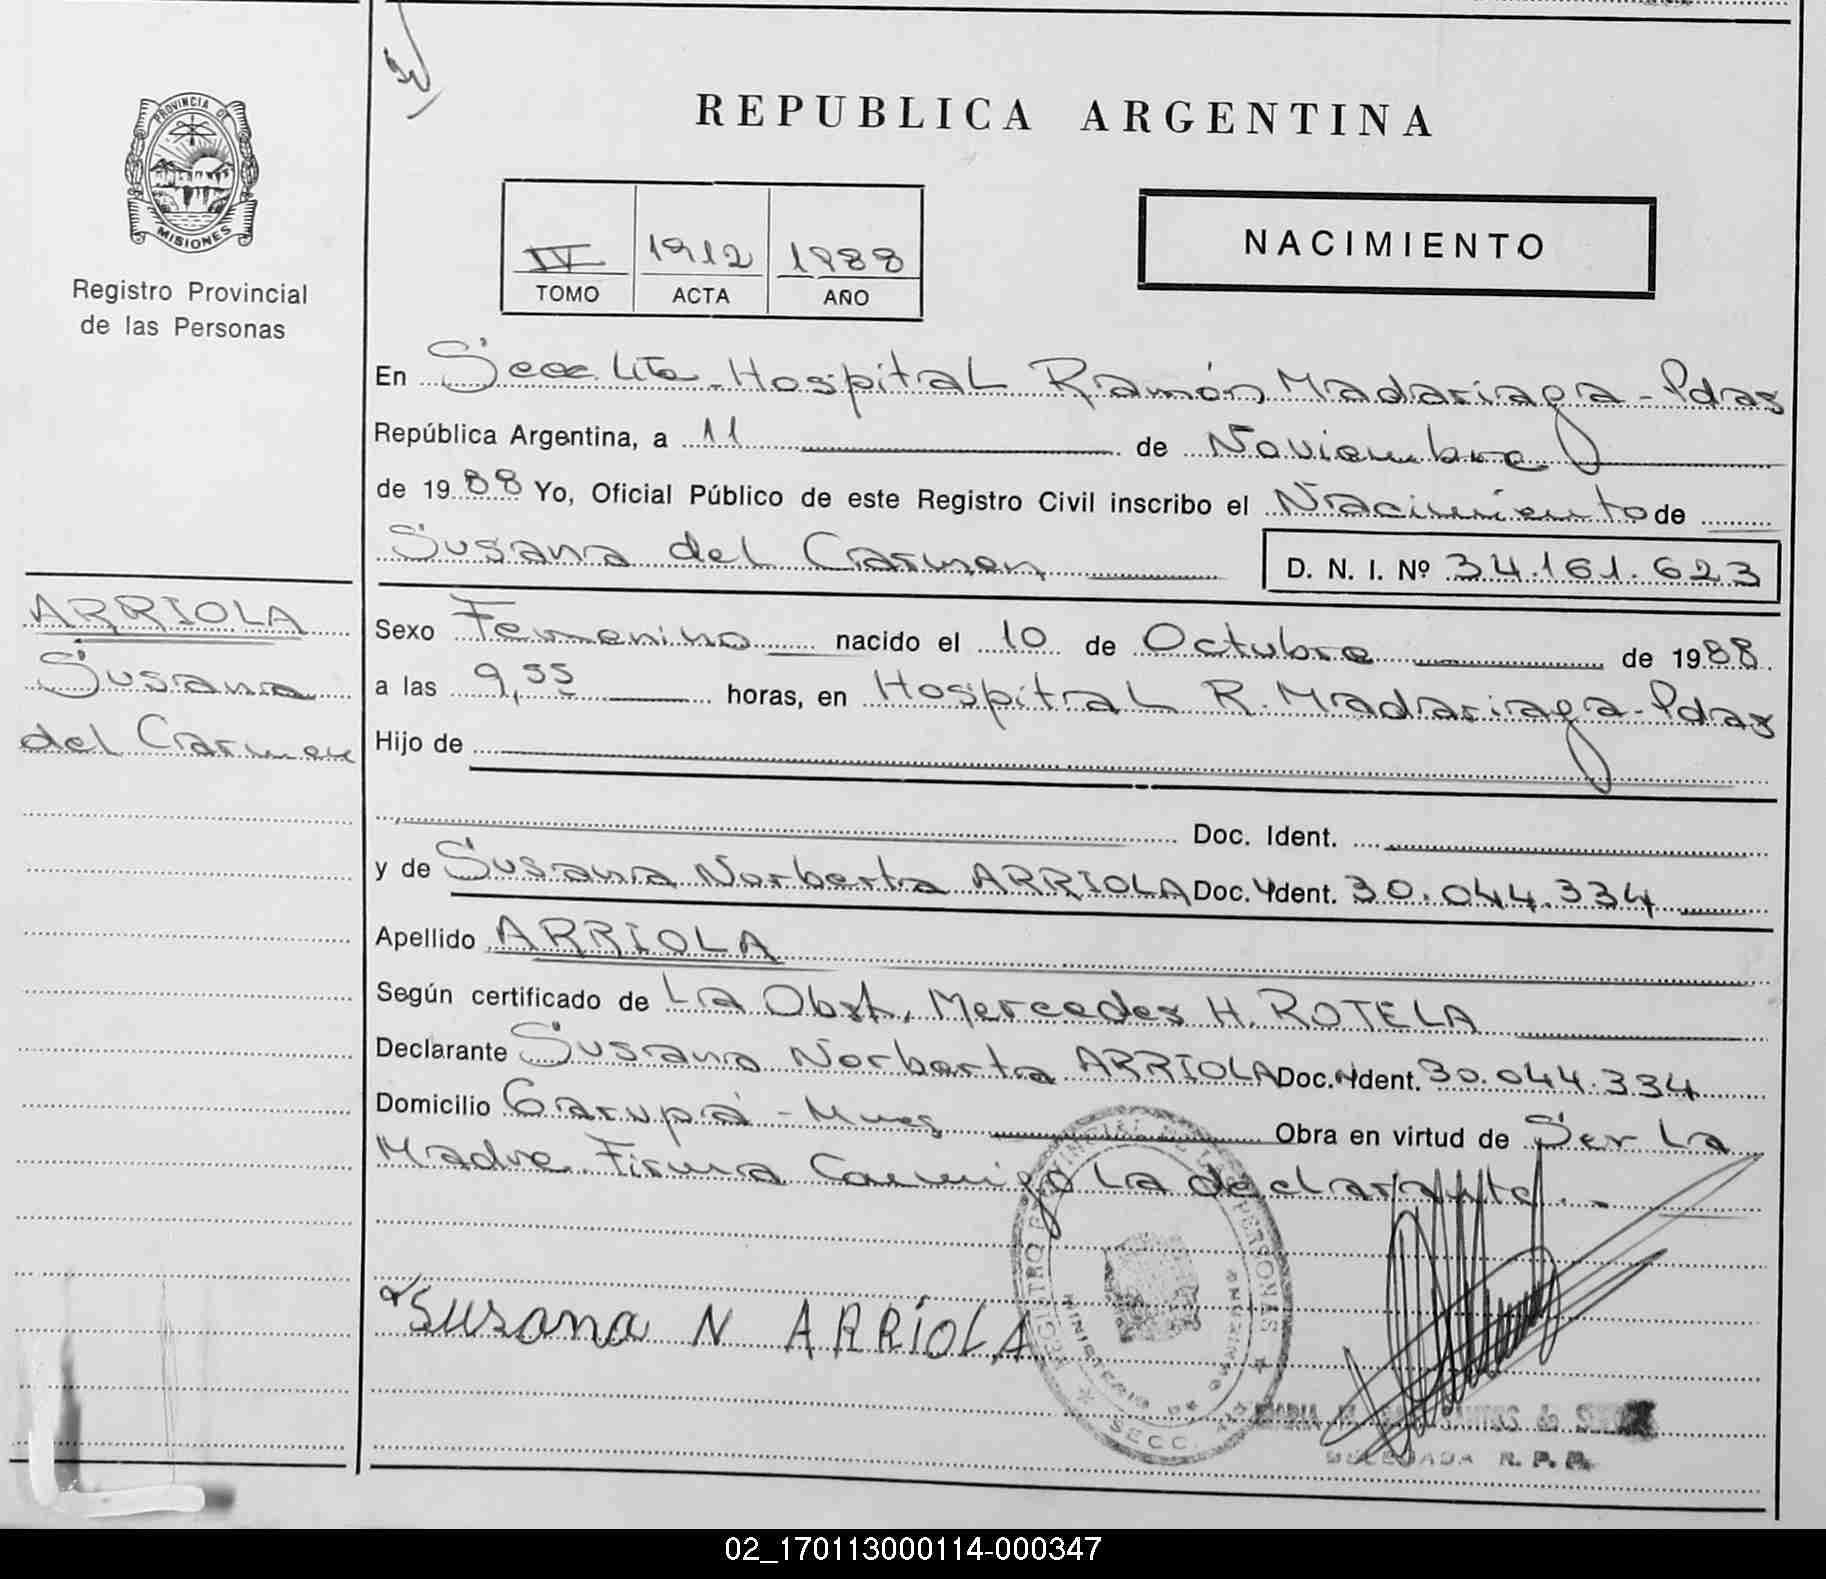 PROVINCIA DE
MISIONES
Registro Provincial
de las Personas
REPUBLICA ARGENTINA
1912 1988
TOMO ACTA AÑO
NACIMIENTO
En Secc. 4ta - Hospital Ramón Madariaga - Pdas
República Argentina, a 11 de Noviembre
de 1988 Yo, Oficial Público de este Registro Civil inscribo el Nacimiento de
Susana del Carmen D. N. I. Nº 34.161.623
ARRIOLA
Susana
del Carmen
Sexo Femenino nacido el 10 de Octubre de 1988
a las 9,55 horas, en Hospital R. Madariaga - Pdas
Hijo de
Doc. Ident.
y de Susana Norberta ARRIOLA Doc. Ident. 30.044.334
Apellido ARRIOLA
Según certificado de La Obst. Mercedes H. ROTELA
Declarante Susana Norberta ARRIOLA Doc. Ident. 30.044.334
Domicilio Garupá - Mnes Obra en virtud de Ser La
Madre Firma Conmigo La declarante. -
Susana N ARRiOLA
REGISTRO PROVINCIAL DE LAS PERSONAS
MINISTERIO DE GOBIERNO
SECC.
DELEGADA R. P. P.
02_170113000114-000347